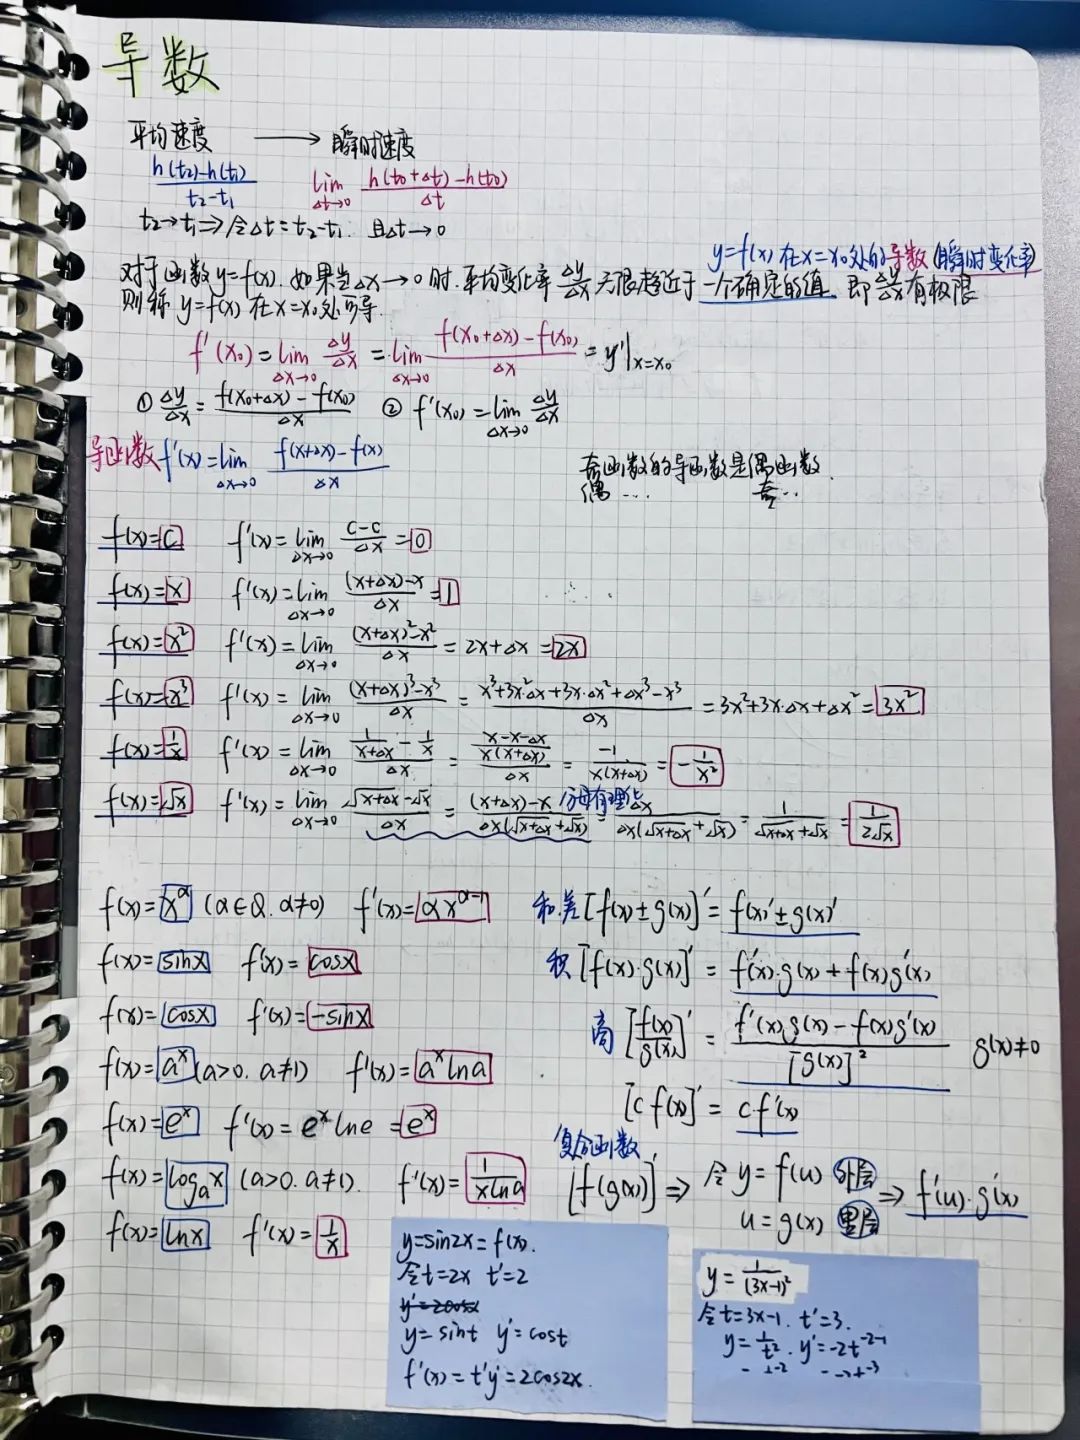 导数
平均速度 ⟶ 瞬时速度
(h(t₂)-h(t₁))/(t₂-t₁)  lim_{Δt→0} (h(t₀+Δt)-h(t₀))/Δt
t₂→t₁ ⇒ 令Δt=t₂-t₁. 且Δt→0
y=f(x)在x=x₀处的导数(瞬时变化率)
对于函数y=f(x). 如果当Δx→0时. 平均变化率 Δy/Δx 无限趋近于一个确定的值. 即 Δy/Δx 有极限
则称y=f(x)在x=x₀处可导.
f'(x₀)=lim_{Δx→0} Δy/Δx = lim_{Δx→0} (f(x₀+Δx)-f(x₀))/Δx = y'|x=x₀
① Δy/Δx = (f(x₀+Δx)-f(x₀))/Δx  ② f'(x₀)=lim_{Δx→0} Δy/Δx
导函数 f'(x)=lim_{Δx→0} (f(x+Δx)-f(x))/Δx
奇函数的导函数是偶函数.
偶… 奇..
f(x)=C  f'(x)=lim_{Δx→0} (C-C)/Δx = 0
f(x)=x  f'(x)=lim_{Δx→0} ((x+Δx)-x)/Δx = 1
f(x)=x²  f'(x)=lim_{Δx→0} ((x+Δx)²-x²)/Δx = 2x+Δx = 2x
f(x)=x³  f'(x)=lim_{Δx→0} ((x+Δx)³-x³)/Δx = (x³+3x²·Δx+3x·Δx²+Δx³-x³)/Δx = 3x²+3x·Δx+Δx² = 3x²
f(x)=1/x  f'(x)=lim_{Δx→0} (1/(x+Δx)-1/x)/Δx = ((x-x-Δx)/(x(x+Δx)))/Δx = -1/(x(x+Δx)) = -1/x²
f(x)=√x  f'(x)=lim_{Δx→0} (√(x+Δx)-√x)/Δx = ((x+Δx)-x)/(Δx(√(x+Δx)+√x)) 分母有理化 = Δx/(Δx(√(x+Δx)+√x)) = 1/(√(x+Δx)+√x) = 1/(2√x)
f(x)=x^α (α∈Q. α≠0)  f'(x)=αx^(α-1)
f(x)=sinx  f'(x)=cosx
f(x)=cosx  f'(x)=-sinx
f(x)=a^x (a>0. a≠1)  f'(x)=a^x lna
f(x)=e^x  f'(x)=e^x lne=e^x
f(x)=logₐx (a>0. a≠1).  f'(x)=1/(xlna)
f(x)=lnx  f'(x)=1/x
和.差 [f(x)±g(x)]'=f(x)'±g(x)'
积 [f(x)·g(x)]'=f'(x)·g(x)+f(x)g'(x)
商 [f(x)/g(x)]'=(f'(x)g(x)-f(x)g'(x))/[g(x)]²  g(x)≠0
[cf(x)]'=c·f'(x)
复合函数
[f(g(x))]' ⇒ 令 y=f(u) 外层 ⇒ f'(u)·g'(x)
u=g(x) 里层
y=sin2x=f(x).
令t=2x t'=2
y'=2cosx
y=sint y'=cost
f'(x)=t'y'=2cos2x.
y=1/(3x-1)²
令t=3x-1. t'=3.
y=1/t². y'=-2t^(-2-1)